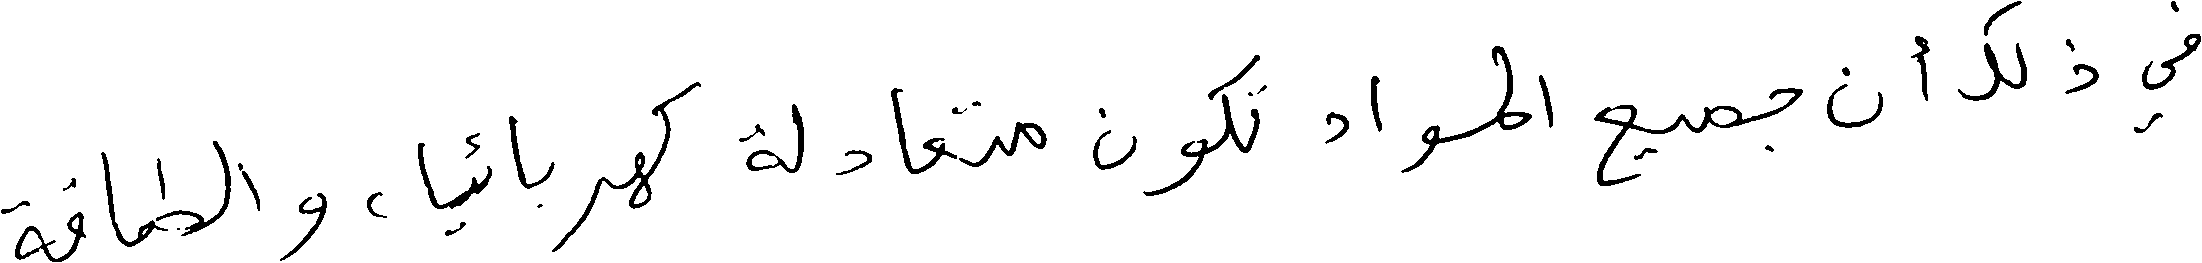 في ذلك أن جميع المواد تكون متعادلة كهربائيا، والطاقة